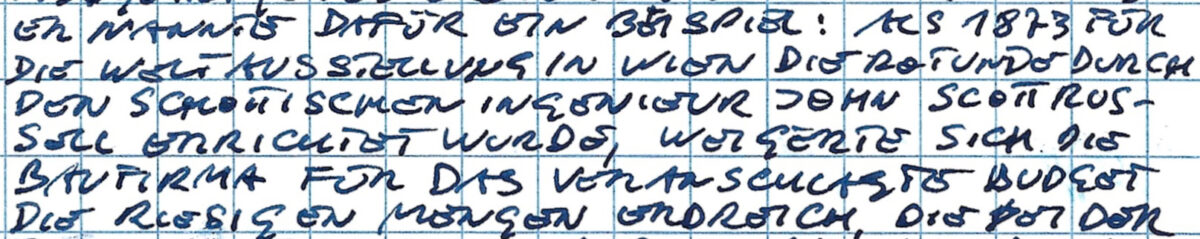 ER NANNTE DAFÜR EIN BEISPIEL: ALS 1873 FÜR
DIE WELTAUSSTELLUNG IN WIEN DIE ROTUNDE DURCH
DEN SCHOTTISCHEN INGENIEUR JOHN SCOTT RUS-
SELL ERRICHTET WURDE, WEIGERTE SICH DIE
BAUFIRMA FÜR DAS VERANSCHLAGTE BUDGET
DIE RIESIGEN MENGEN ERDREICH, DIE BEI DER